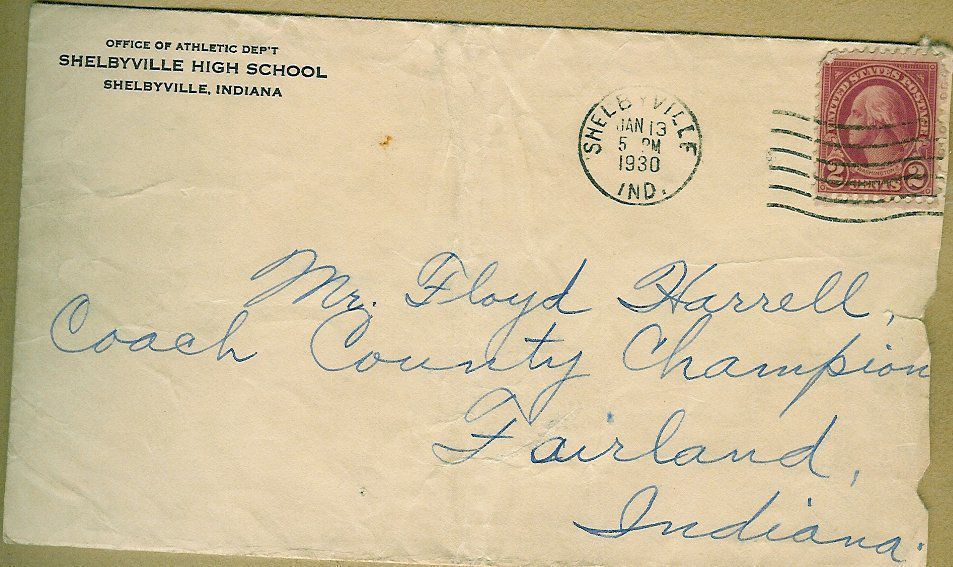 OFFICE OF ATHLETIC DEP'T
SHELBYVILLE HIGH SCHOOL
SHELBYVILLE, INDIANA
SHELBYVILLE
JAN 13
5 PM
1930
IND.
UNITED STATES POSTAGE
WASHINGTON
2 CENTS 2
Mr. Floyd Harrell,
Coach County Champion
Fairland,
Indiana.